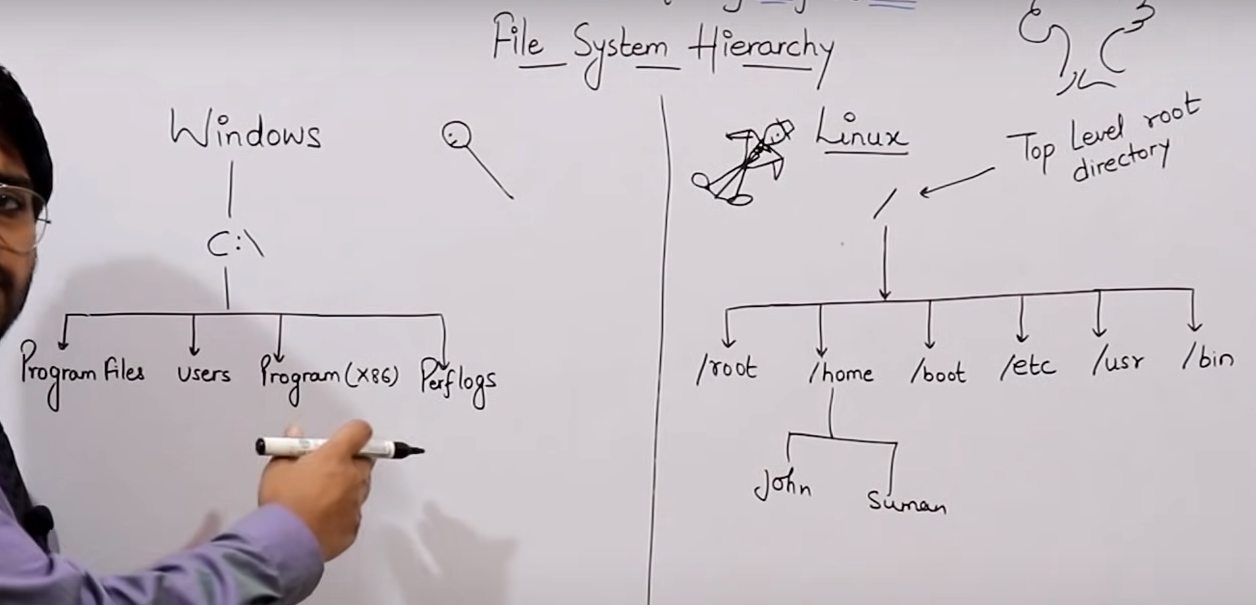 File System Hierarchy
Windows
C:\
Program Files
Users
Program (X86)
Perf logs
Linux
Top Level root
directory
/
/root
/home
/boot
/etc
/usr
/bin
John
Suman